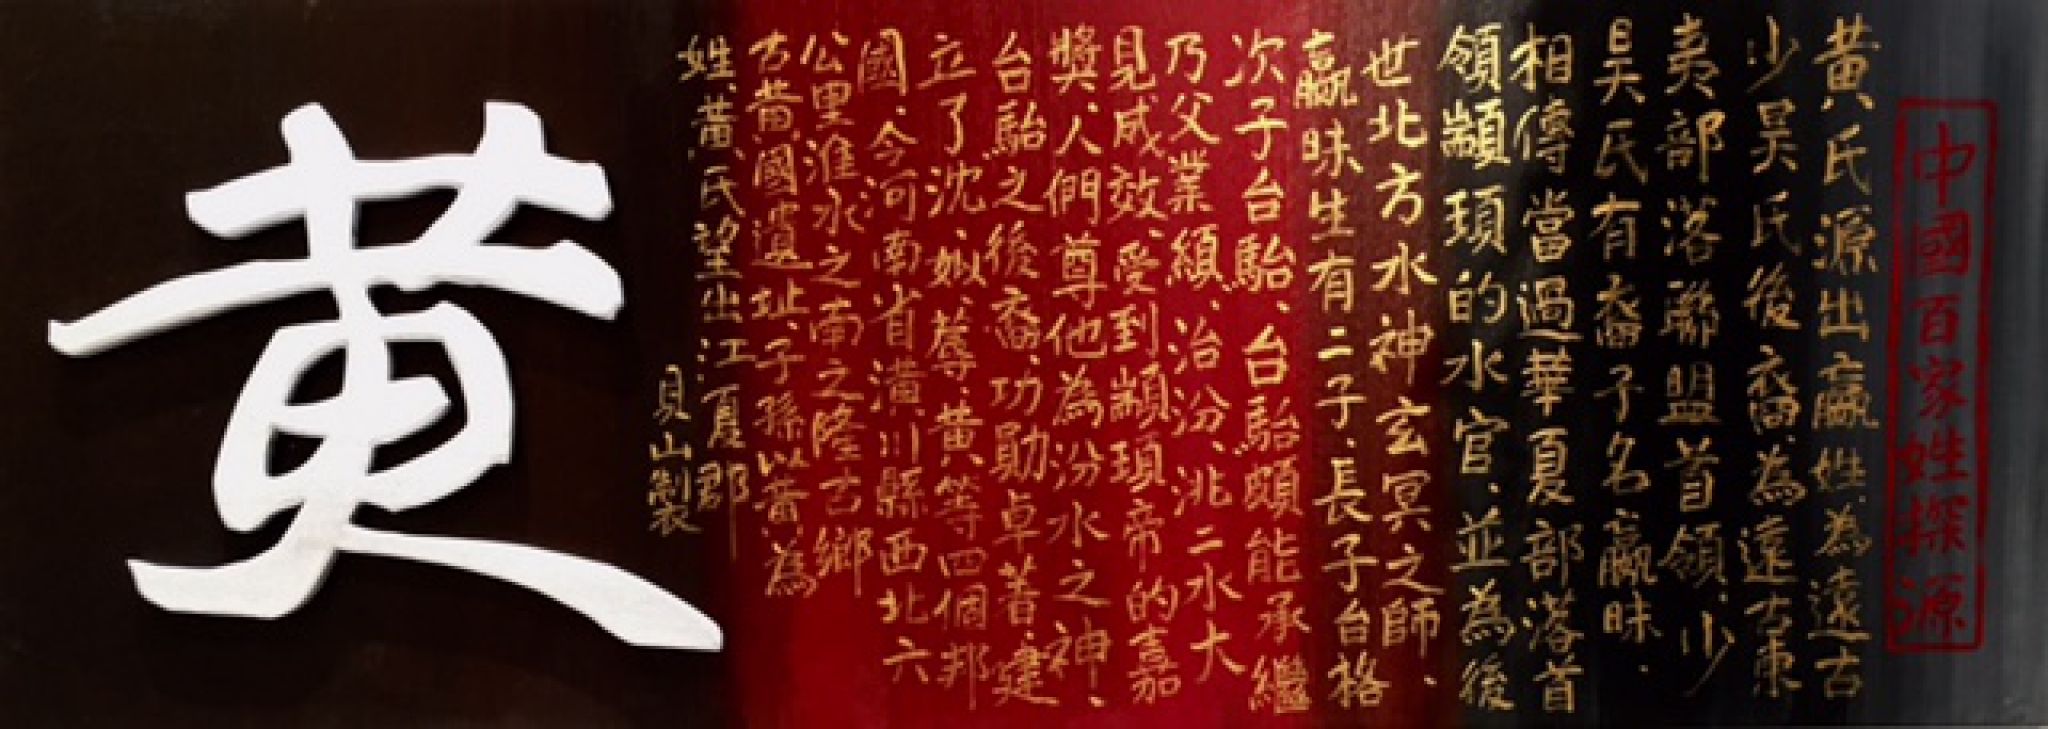 中國百家姓探源
黃氏源出嬴姓、為遠古
少昊氏後裔、為遠古東
夷部落聯盟首領、少
昊氏有裔子名嬴昧、
相傳當過華夏部落首
領顓頊的水官、並為後
世北方水神玄冥之師、
嬴昧生有二子、長子台格
次子台駘、台駘頗能承繼
乃父業績、治汾、洮二水大
見成效、受到顓頊帝的嘉
獎、人們尊他為汾水之神、
台駘之後裔、功勛卓著、建
立了沈、姒、蓐、黃、等四個邦
國、今河南省潢川縣西北六
公里淮水之南之隆古鄉
古黃國遺址、子孫以黃為
姓、黃氏望出江夏郡
見山製
黃